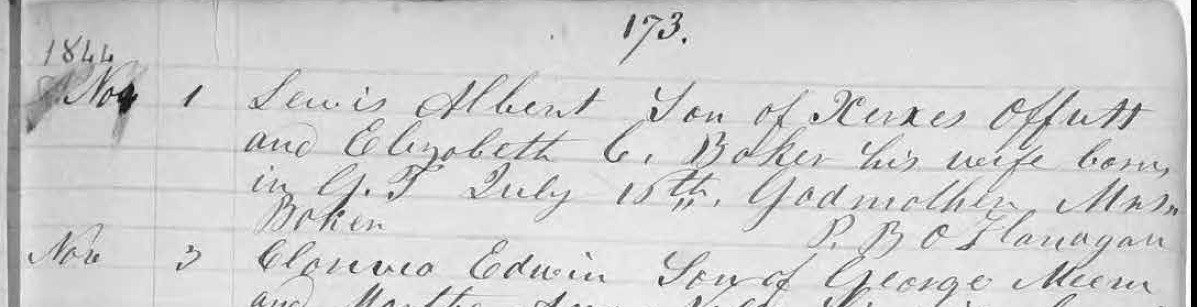 173.
1844
Nov 1 Lewis Albert Son of Xerxes Offutt
and Elizabeth C. Baker his wife born
in G. T July 15th. Godmother Mrs.
Baker
P. B O Flanagan
Nov 3 Edwin Son of George Meem
and Martha Ann